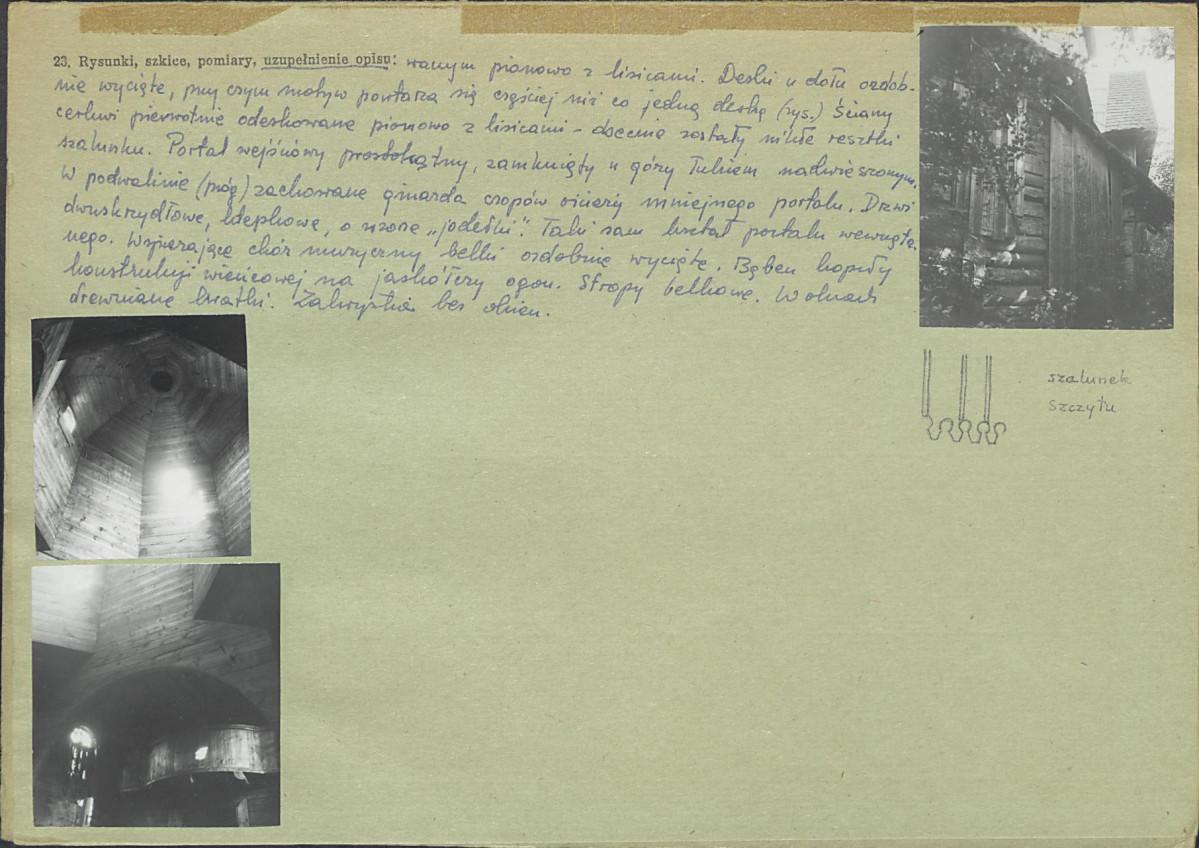 23. Rysunki, szkice, pomiary, uzupełnienie opisu: wanym pionowo z lisicami. Deski u dołu ozdob-
nie wycięte, przy czym motyw powtarza się częściej niż co jedną deskę (rys.) Ściany
cerkwi pierwotnie odeskowane pionowo z lisicami - obecnie zostały nikłe resztki
szalunku. Portal wejściowy prostokątny, zamknięty u góry łukiem nadwieszonym.
W podwalinie (próg) zachowane gniazda czopów ościeży mniejszego portalu. Drzwi
dwuskrzydłowe, klepkowe, o wzorze „jodełki". Taki sam kształt portalu wewnętrz.
nego. Wspierające chór muzyczny belki ozdobnie wycięte. Bęben kopuły
konstrukcji wieńcowej na jaskółczy ogon. Stropy belkowe. W oknach
drewniane kratki. Zakrystia bez okien.
szalunek
szczytu